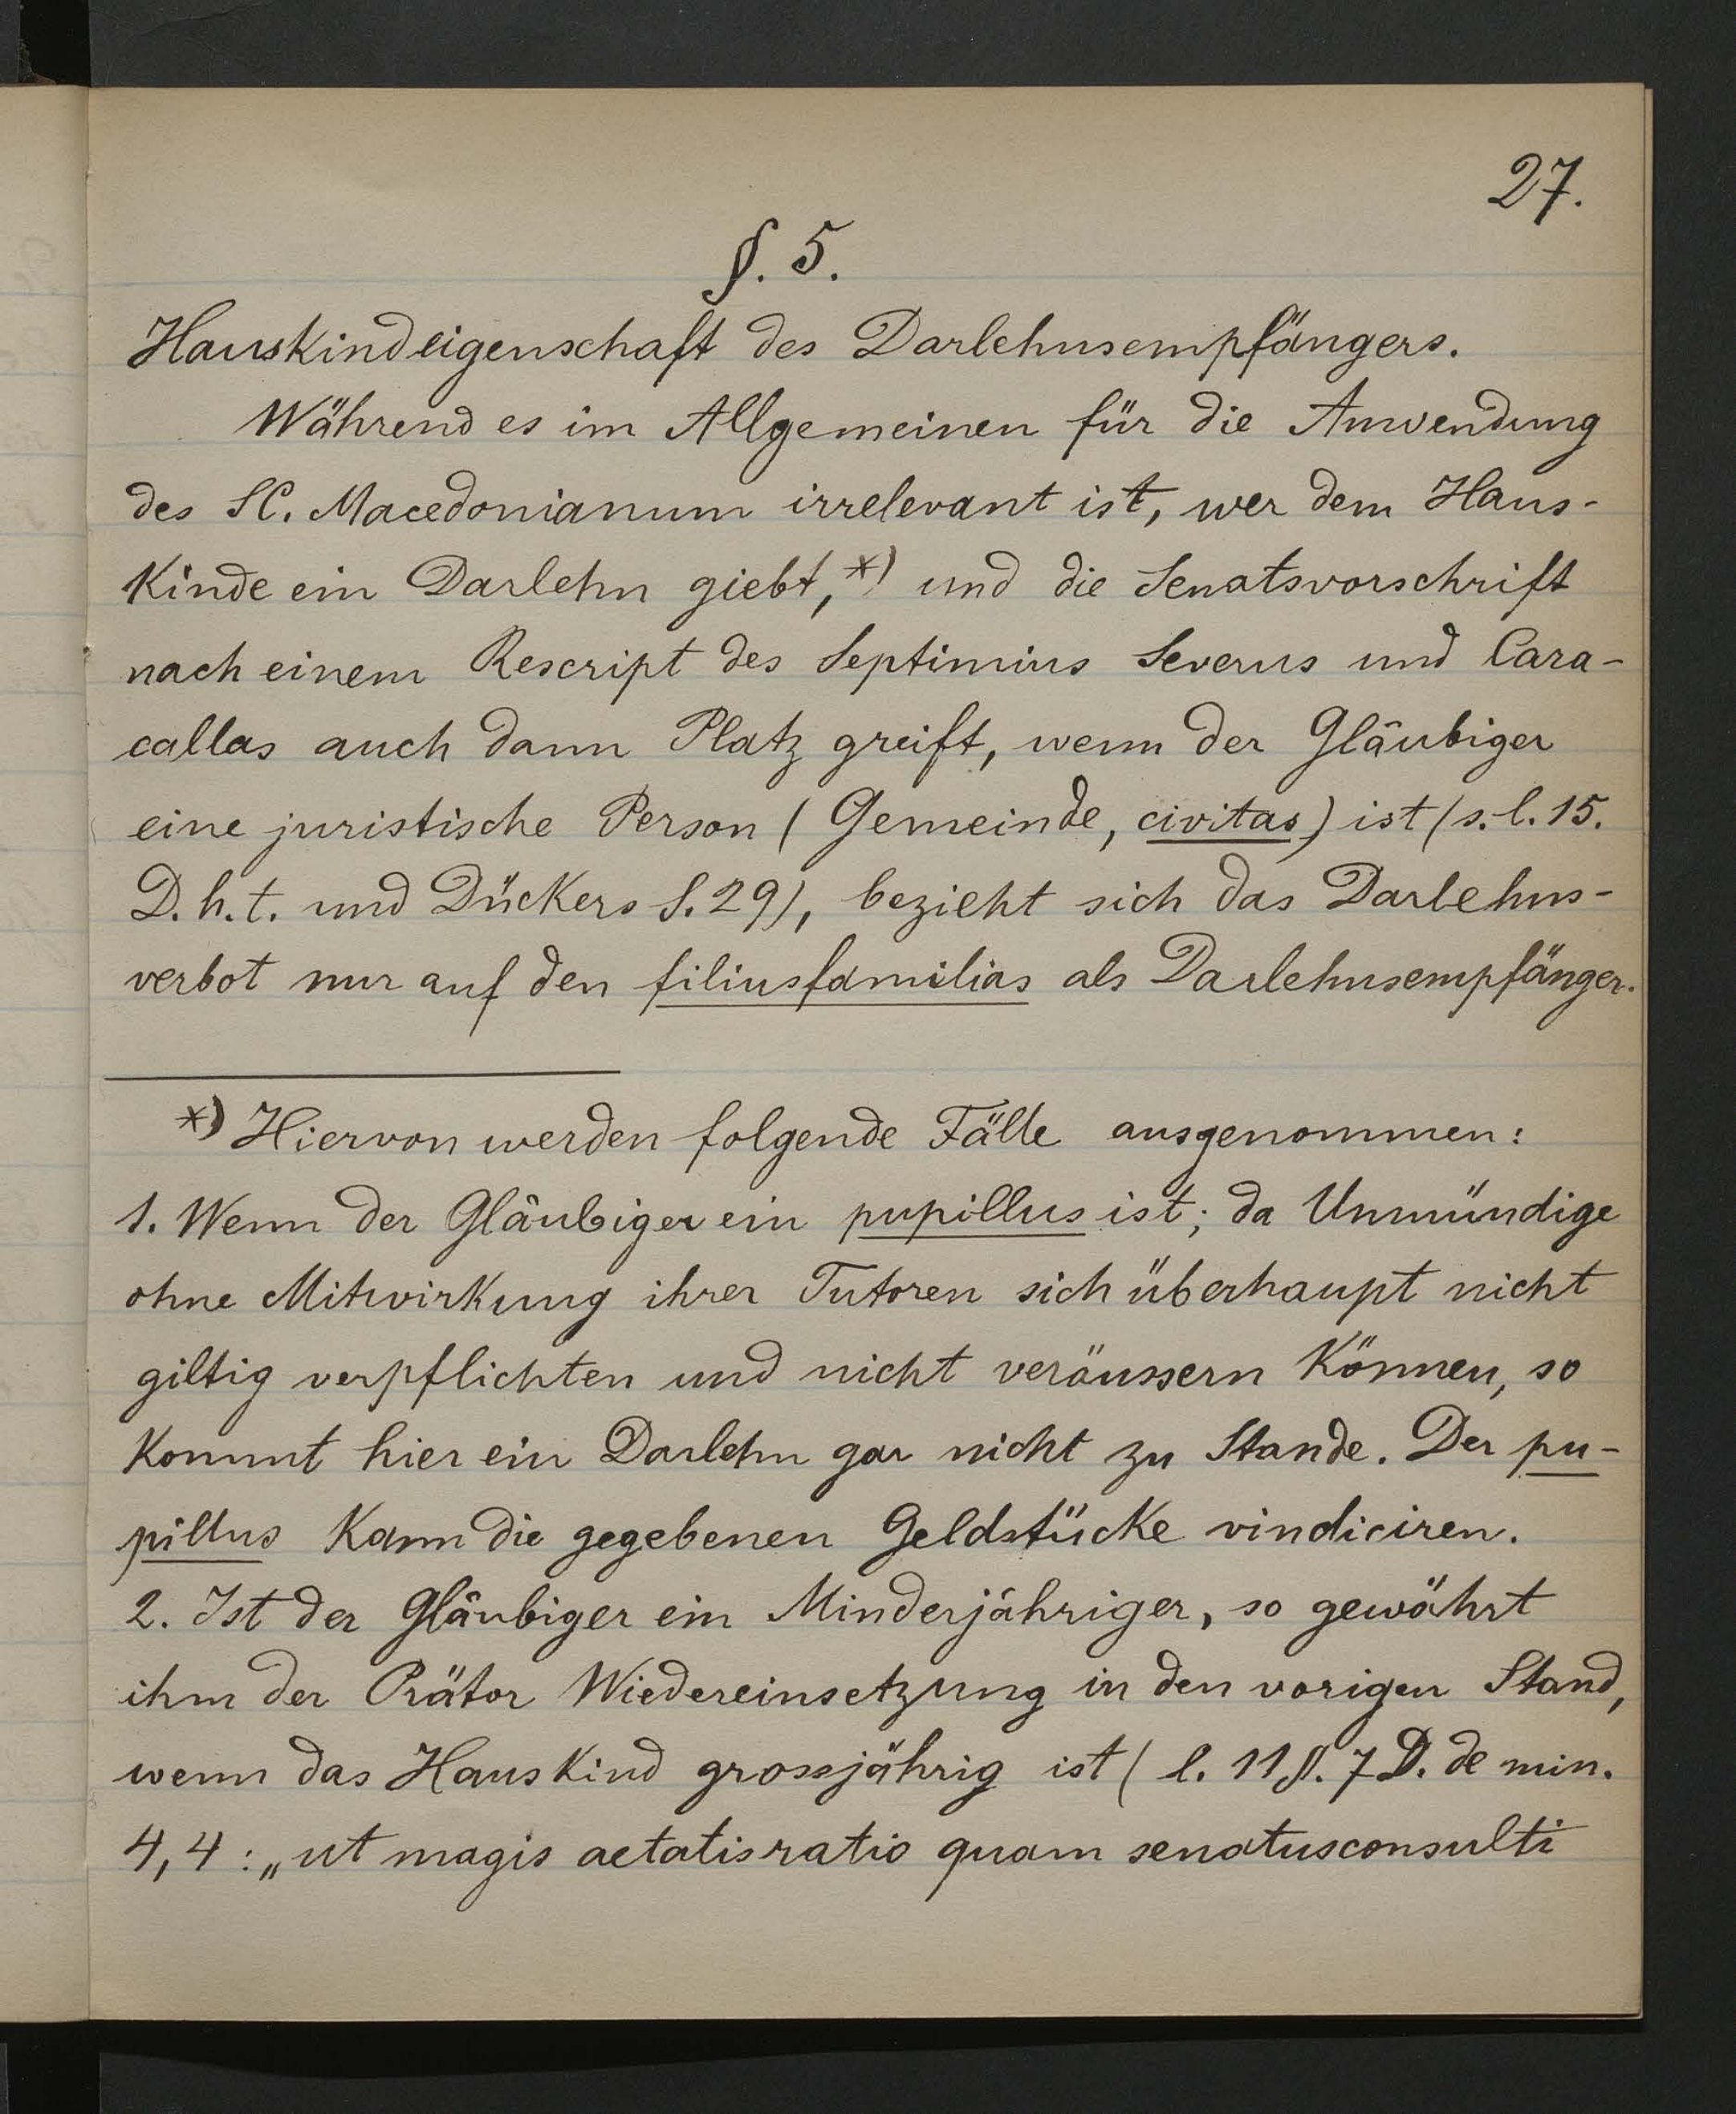 27.
§. 5.
Hauskindeigenschaft des Darlehnsempfängers.
Während es im Allgemeinen für die Anwendung
des SC. Macedonianum irrelevant ist, wer dem Haus-
kinde ein Darlehn giebt,*) und die Senatsvorschrift
nach einem Rescript des Septimius Severus und Cara-
callas auch dann Platz greift, wenn der Gläubiger
eine juristische Person (Gemeinde, civitas) ist (s. l. 15.
D. h. t. und Dückers S. 29), bezieht sich das Darlehns-
verbot nur auf den filiusfamilias als Darlehnsempfänger.
*) Hiervon werden folgende Fälle ausgenommen:
1. Wenn der Gläubiger ein pupillus ist; da Unmündige
ohne Mitwirkung ihrer Tutoren sich überhaupt nicht
giltig verpflichten und nicht veräussern können, so
kommt hier ein Darlehn gar nicht zu Stande. Der pu-
pillus kann die gegebenen Geldstücke vindiciren.
2. Ist der Gläubiger ein Minderjähriger, so gewährt
ihm der Prätor Wiedereinsetzung in den vorigen Stand,
wenn das Hauskind grossjährig ist (l. 11 §. 7 D. de min.
4,4: „ut magis aetatis ratio quam senatusconsulti